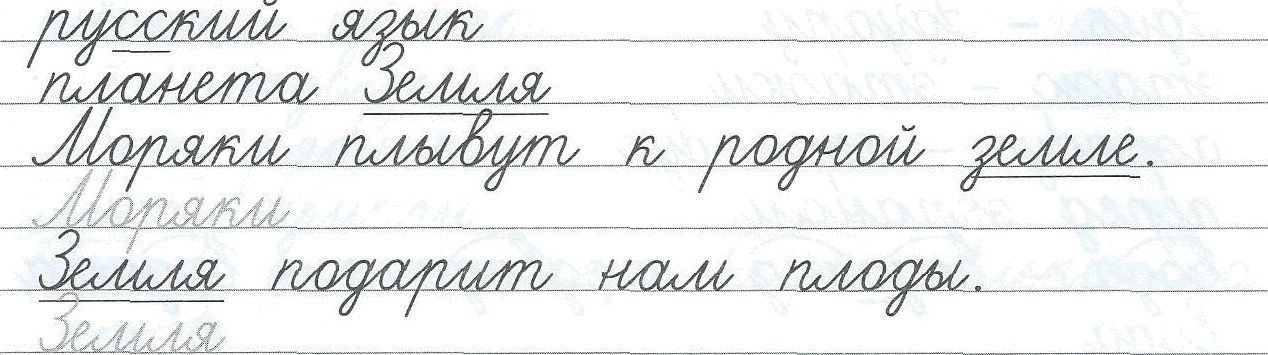 русский язык
планета Земля
Моряки плывут к родной земле.
Моряки
Земля подарит нам плоды.
Земля